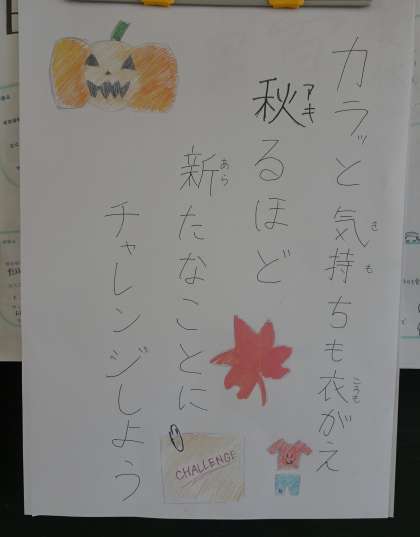 カラッと気持ちも衣がえ
秋るほど
新たなことに
チャレンジしよう
CHALLENGE